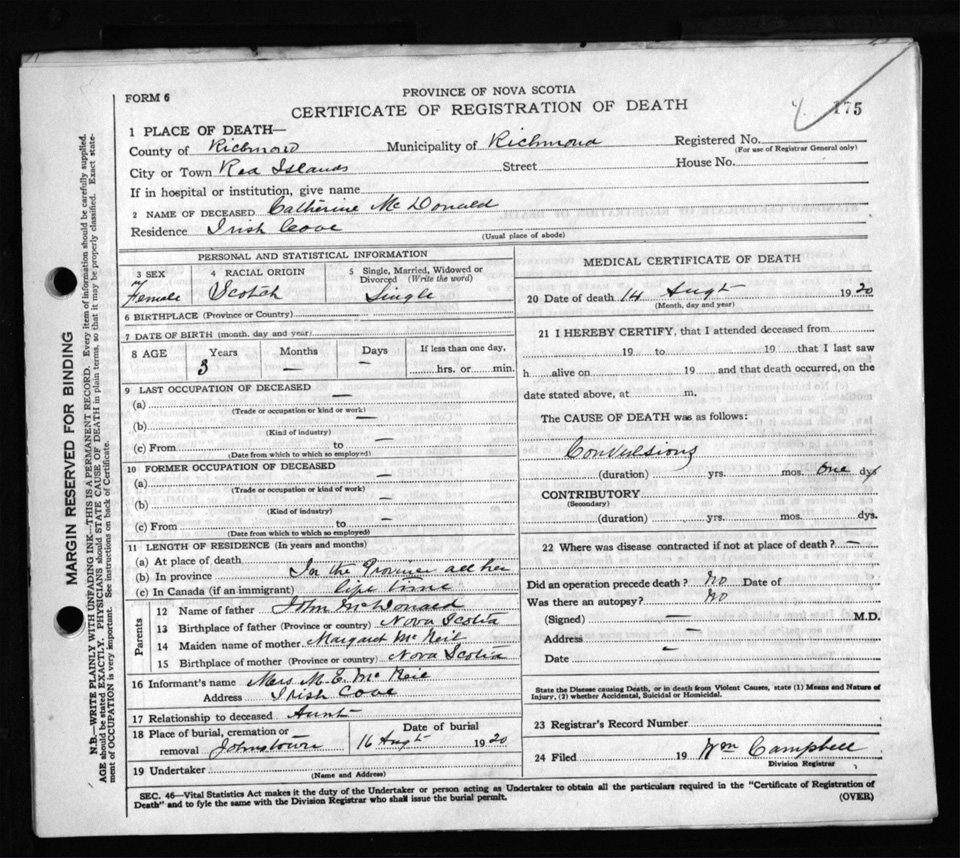 FORM 6
PROVINCE OF NOVA SCOTIA
CERTIFICATE OF REGISTRATION OF DEATH
175
1 PLACE OF DEATH—
County of Richmond Municipality of Richmond Registered No.
(For use of Registrar General only)
City or Town Rea Islands Street House No.
If in hospital or institution, give name
2 NAME OF DECEASED Catherine McDonald
Residence Irish Cove
(Usual place of abode)
PERSONAL AND STATISTICAL INFORMATION
3 SEX 4 RACIAL ORIGIN 5 Single, Married, Widowed or Divorced (Write the word)
Female Scotch Single
6 BIRTHPLACE (Province or Country)
7 DATE OF BIRTH (month, day and year)
8 AGE Years Months Days If less than one day,
3 — — hrs. or min.
9 LAST OCCUPATION OF DECEASED
(a) —
(Trade or occupation or kind or work)
(b) —
(Kind of industry)
(c) From to —
(Date from which to which so employed)
10 FORMER OCCUPATION OF DECEASED
(a) —
(Trade or occupation or kind of work)
(b) —
(Kind of industry)
(c) From to —
(Date from which to which so employed)
11 LENGTH OF RESIDENCE (In years and months)
(a) At place of death
(b) In province In the Province all her
(c) In Canada (if an immigrant) life time
Parents
12 Name of father John McDonald
13 Birthplace of father (Province or country) Nova Scotia
14 Maiden name of mother Margaret McNeil
15 Birthplace of mother (Province or country) Nova Scotia
16 Informant's name Mrs M. E. McNeil
Address Irish Cove
17 Relationship to deceased Aunt
18 Place of burial, cremation or removal Johnstown Date of burial 16 Augt 1920
19 Undertaker
(Name and Address)
MEDICAL CERTIFICATE OF DEATH
20 Date of death 14 Augt 1920
(Month, day and year)
21 I HEREBY CERTIFY, that I attended deceased from
19 to 19 that I last saw
h alive on 19 and that death occurred, on the
date stated above, at m.
The CAUSE OF DEATH was as follows:
Convulsions
(duration) yrs. mos. one dys
CONTRIBUTORY
(Secondary)
(duration) yrs. mos. dys.
22 Where was disease contracted if not at place of death? —
Did an operation precede death? No Date of
Was there an autopsy? No
(Signed) — M.D.
Address —
Date —
State the Disease causing Death, or in death from Violent Causes, state (1) Means and Nature of
Injury, (2) whether Accidental, Suicidal or Homicidal.
23 Registrar's Record Number
24 Filed 19 Wm Campbell
Division Registrar
SEC. 46—Vital Statistics Act makes it the duty of the Undertaker or person acting as Undertaker to obtain all the particulars required in the "Certificate of Registration of
Death" and to fyle the same with the Division Registrar who shall issue the burial permit.
(OVER)
MARGIN RESERVED FOR BINDING
N.B.—WRITE PLAINLY WITH UNFADING INK—THIS IS A PERMANENT RECORD. Every item of information should be carefully supplied.
AGE should be stated EXACTLY. PHYSICIANS should STATE CAUSE OF DEATH in plain terms, so that it may be properly classified. Exact state-
ment of OCCUPATION is very important. See instructions on back of Certificate.